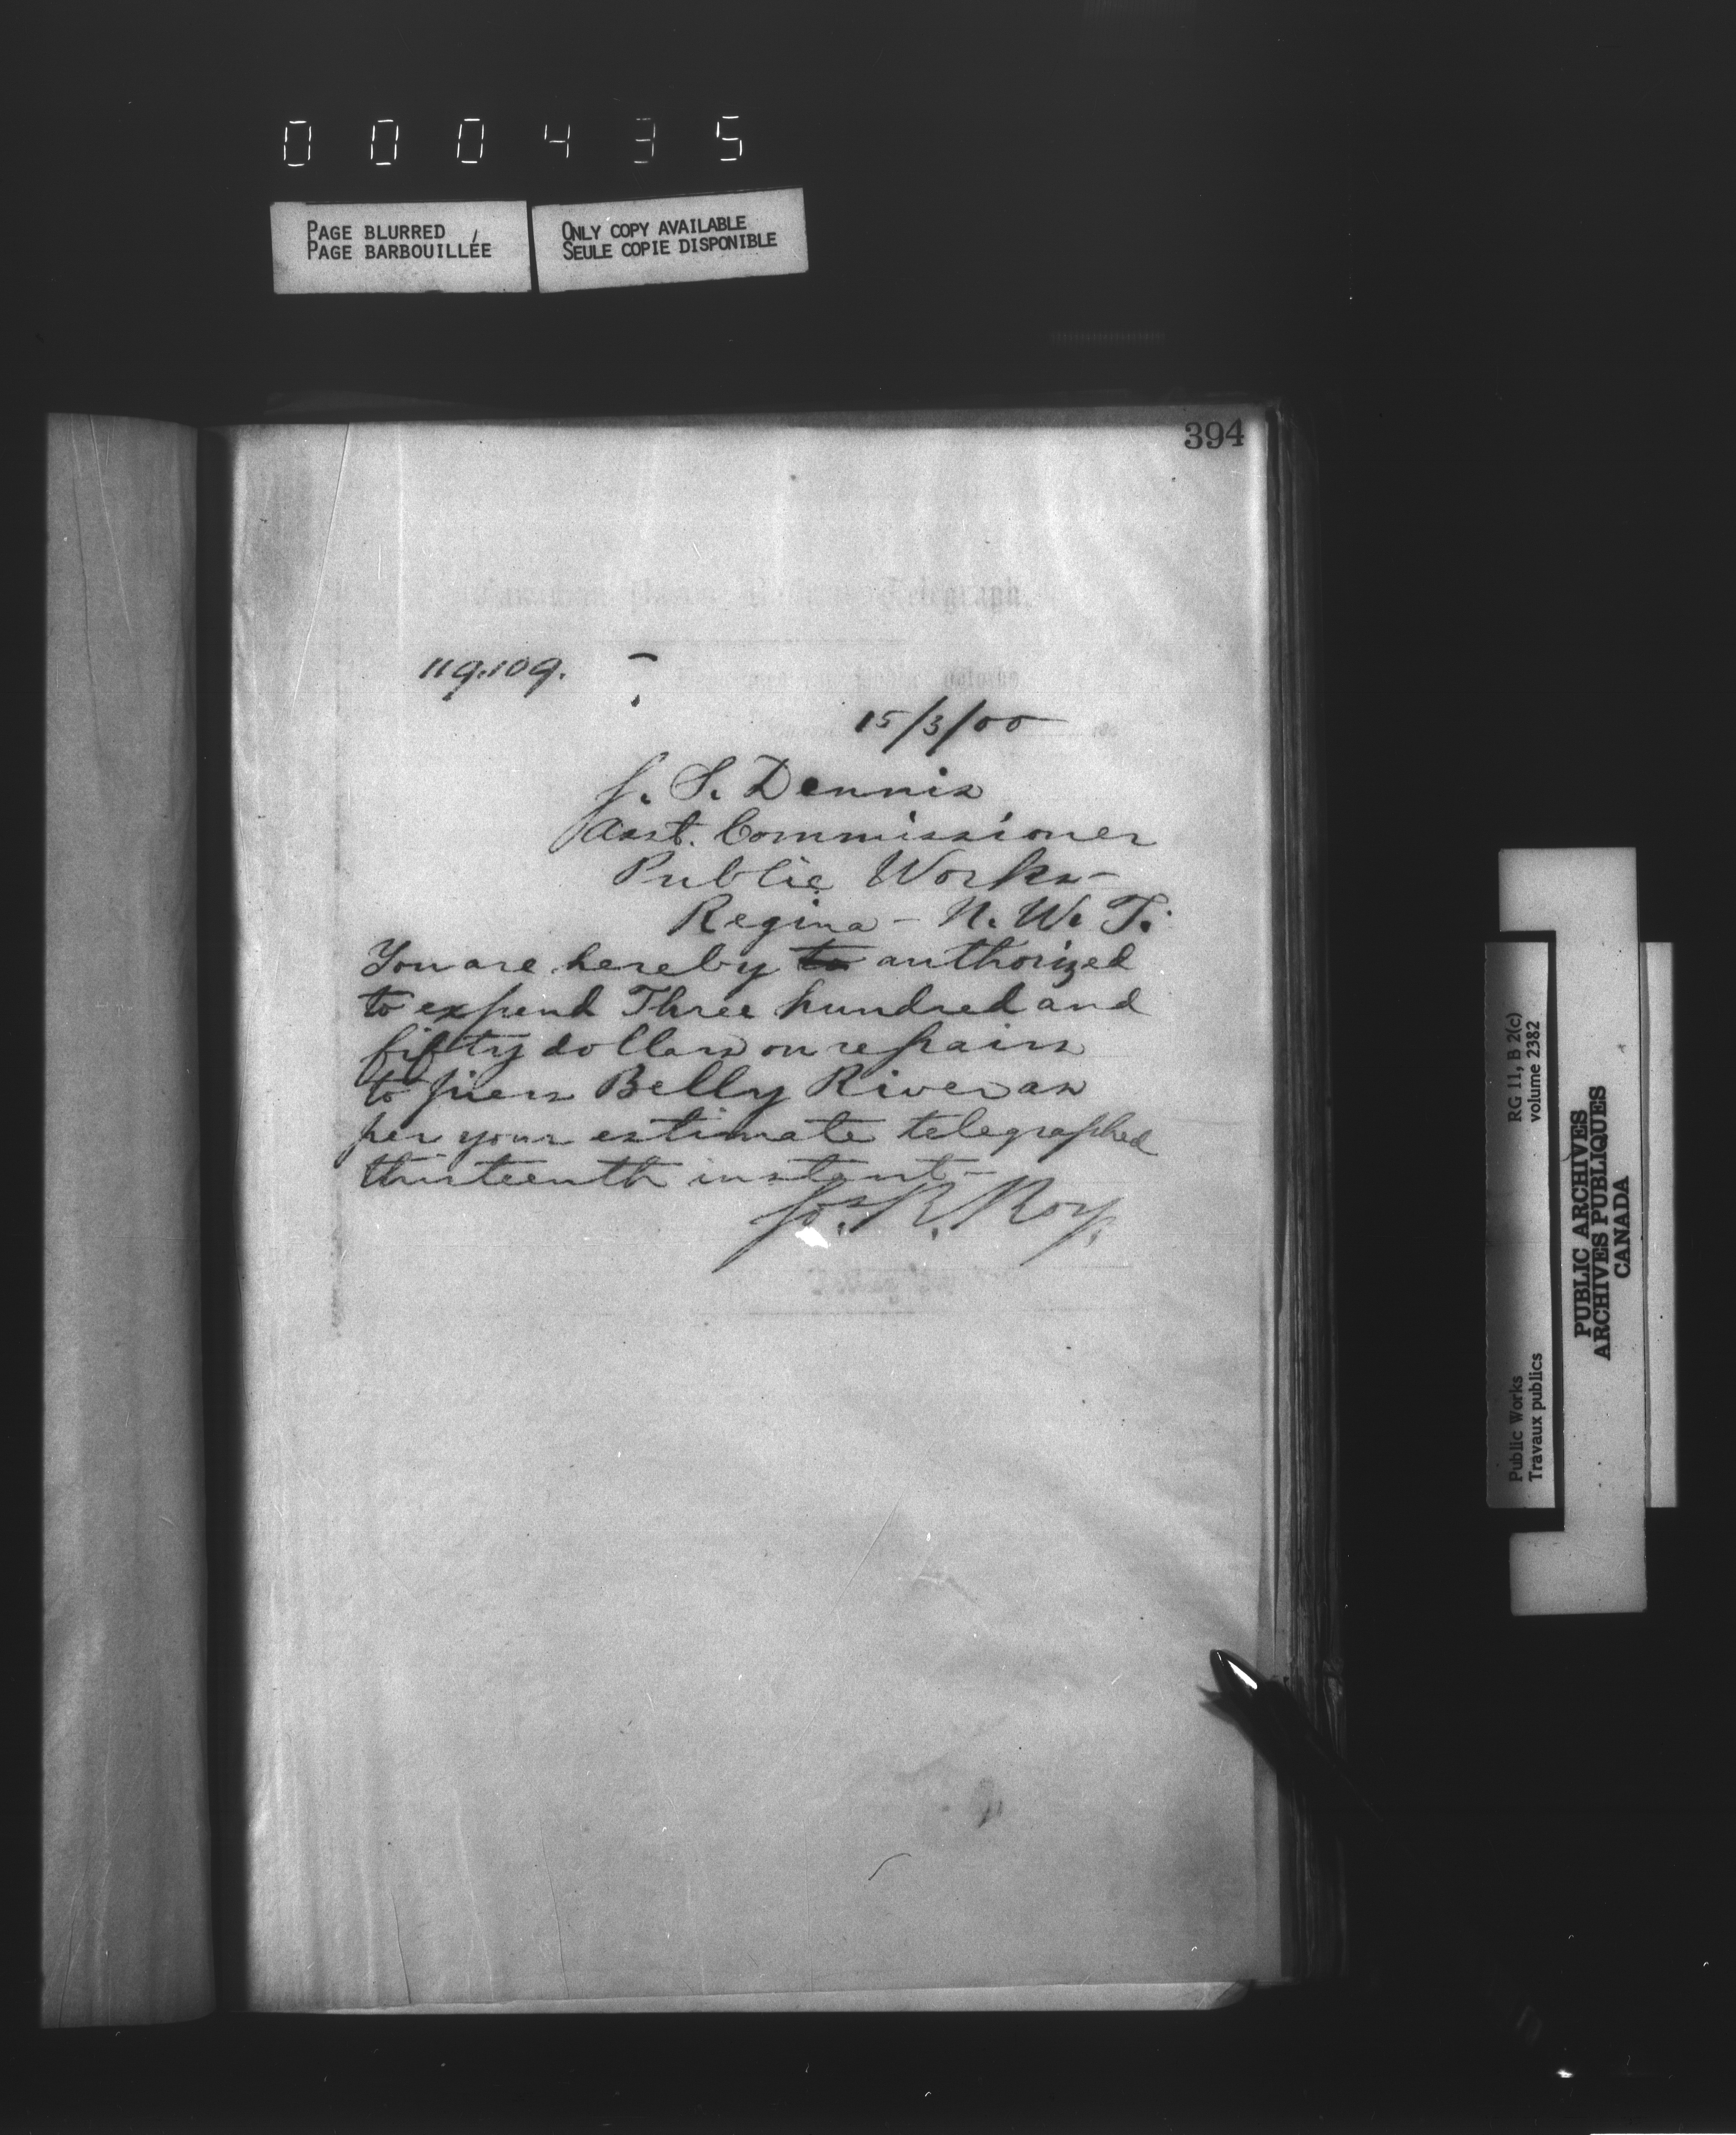 000435
PAGE BLURRED
PAGE BARBOUILLÉE
ONLY COPY AVAILABLE
SEULE COPIE DISPONIBLE
394
Telegraph
119.109.
15/3/00
J. S. Dennis
Asst. Commissioner
Public Works-
Regina - N. W. T.
You are hereby to authorized
to expend Three hundred and
fifty dollars on repairs
to piers Belly River as
per your estimate telegraphed
thirteenth instant-
Jos. R. Roy.
RG 11, B 2(c)
volume 2382
Public Works
Travaux publics
PUBLIC ARCHIVES
ARCHIVES PUBLIQUES
CANADA